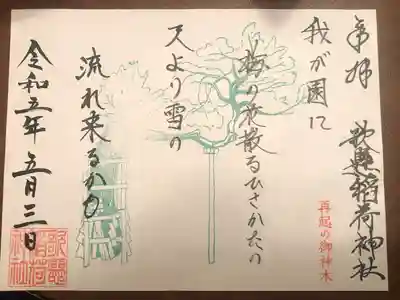 奉拝
歌懸稲荷神社
再起の御神木
我が園に
梅の花散るひさかたの
天より雪の
流れ来るかも
令和五年五月三日
歌懸稲荷神社